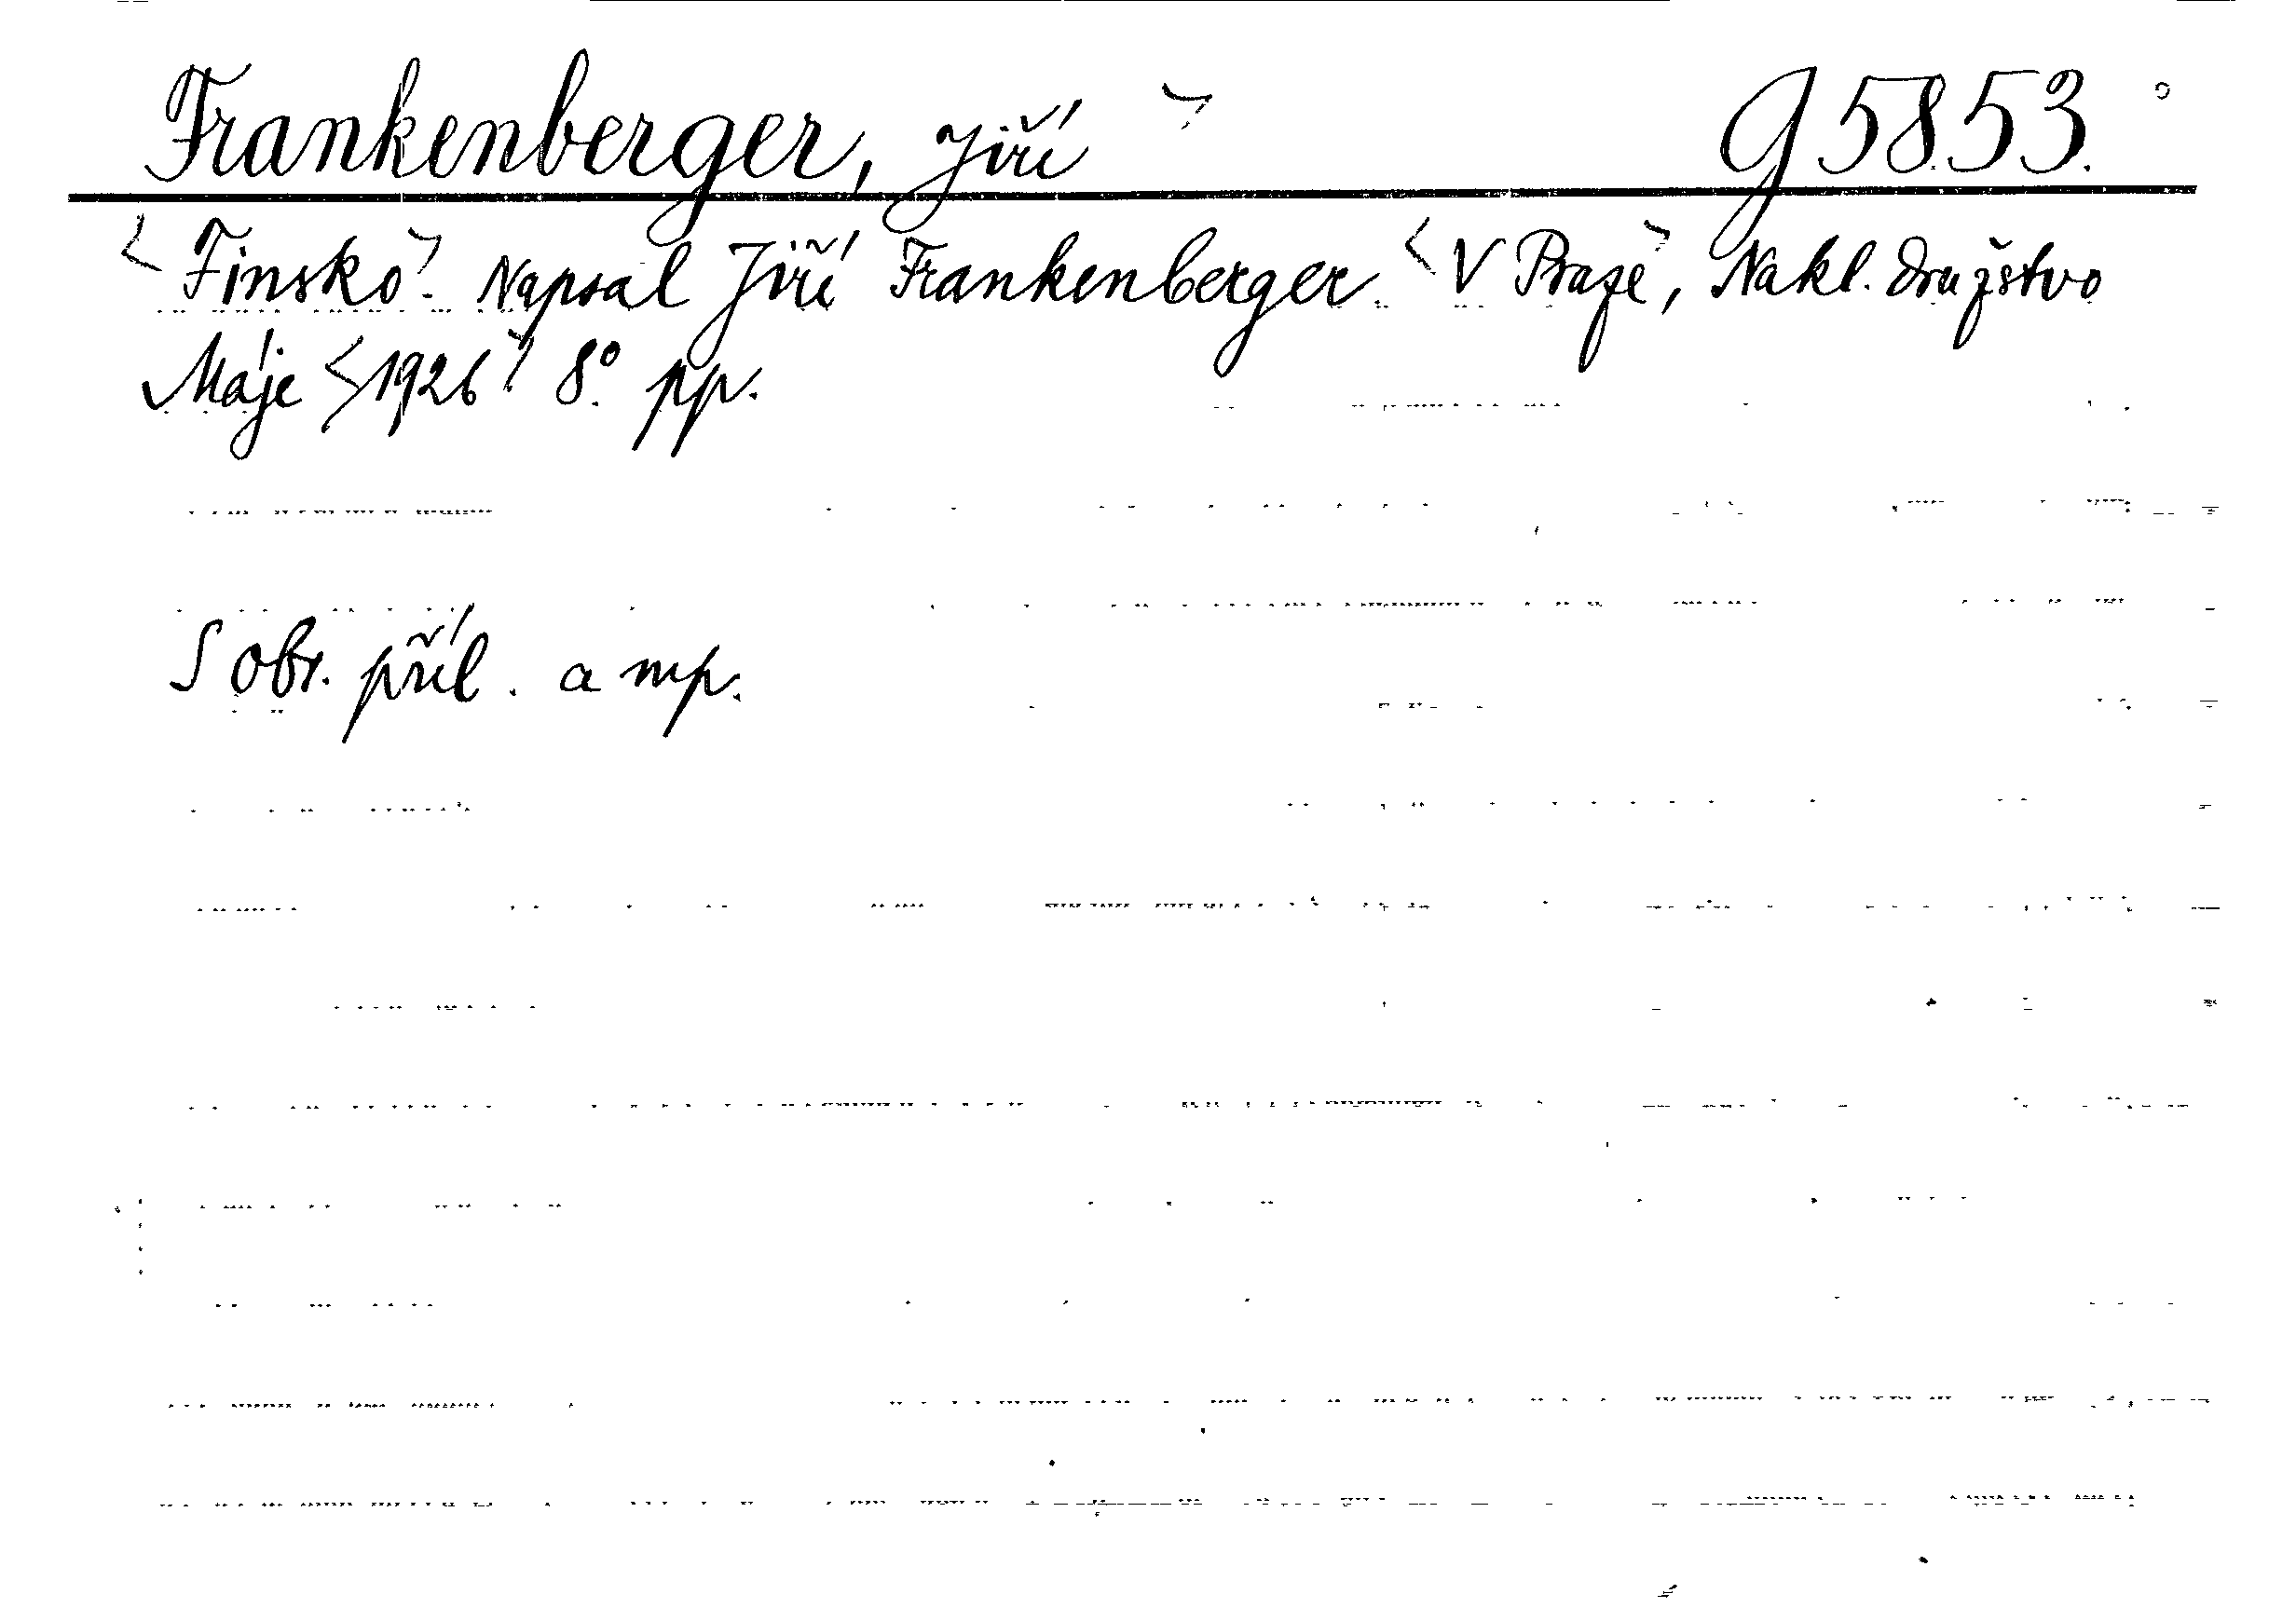 Frankenberger, Jiří > g 5853.
<Finsko>. Napsal Jiří Frankenberger. <V Praze>, Nakl. družstvo
Máje <1926> 8° pp.
S obr. příl. a mp.